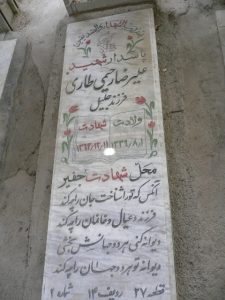 پاسدار شهید
علیرضا رحیمی طاری
فرزند جلیل
ولادت شهادت
۱۳۳۹/۸/۱ ۱۳۶۲/۱۲/۱۱
محل شهادت خیبر
آنکس که تو را شناخت جان را چه کند
فرزند و عیال و خانمان را چه کند
دیوانه کنی هر دو جهانش بخشی
دیوانه تو هر دو جهان را چه کند
قطعه ۲۷ ردیف ۱۴ شماره ۲